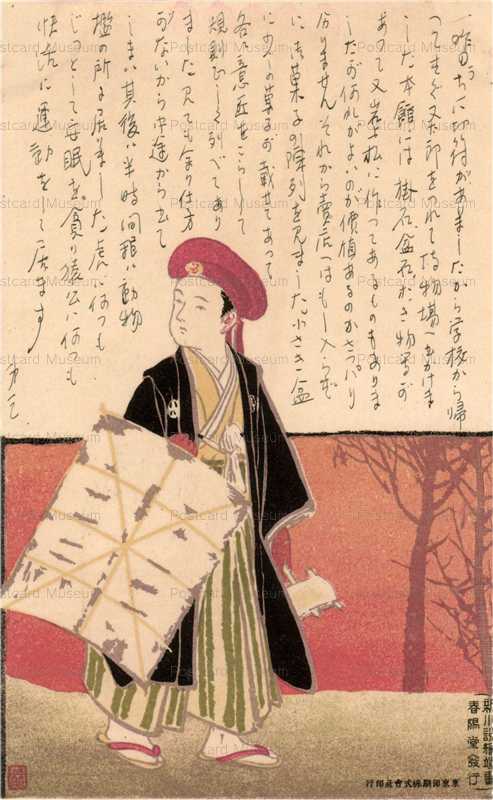 昨日うちに切符がありましたから学校から帰
つてすぐ又郎をつれて博物場へ出かけま
した本館には掛石盆石おき物などが
あつて又岩に松に作つてあるものもありま
したが何れがよいのか價値あるのかさつぱり
分りませんそれから賣店へはもー入らず
にお菓子の陳列を見ました小さき盆
に少しの菓子が載せてあつて
各意匠をこらして
規則正しく列べてあり
ましたが見ても余り仕方
がないから中途から出て
しまい其後は半時間程は動物
檻の所に居ました
じつとして安眠を貪り猿公は何でも
快活に運動をして居ます
春陽堂發行
東京印刷株式會社印行
Postcard Museum